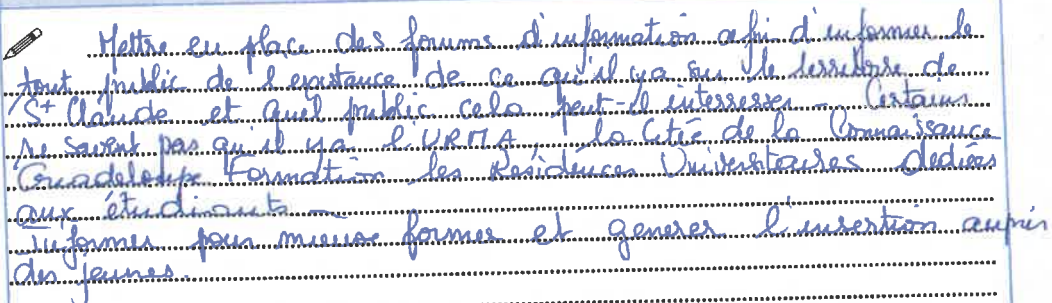 Mettre en place des forums d'information afin d'informer le
tout public de l'existance de ce qu'il ya sur le territoire de
St Claude et quel public cela peut-il interresser - Certains
ne savent pas qu'il ya l'URMA, la Cité de la Connaissance
Guadeloupe Formation les Résidences Universitaires dediées
aux étudiants -
Informer pour mieux former et generer l'insertion auprès
des jeunes.